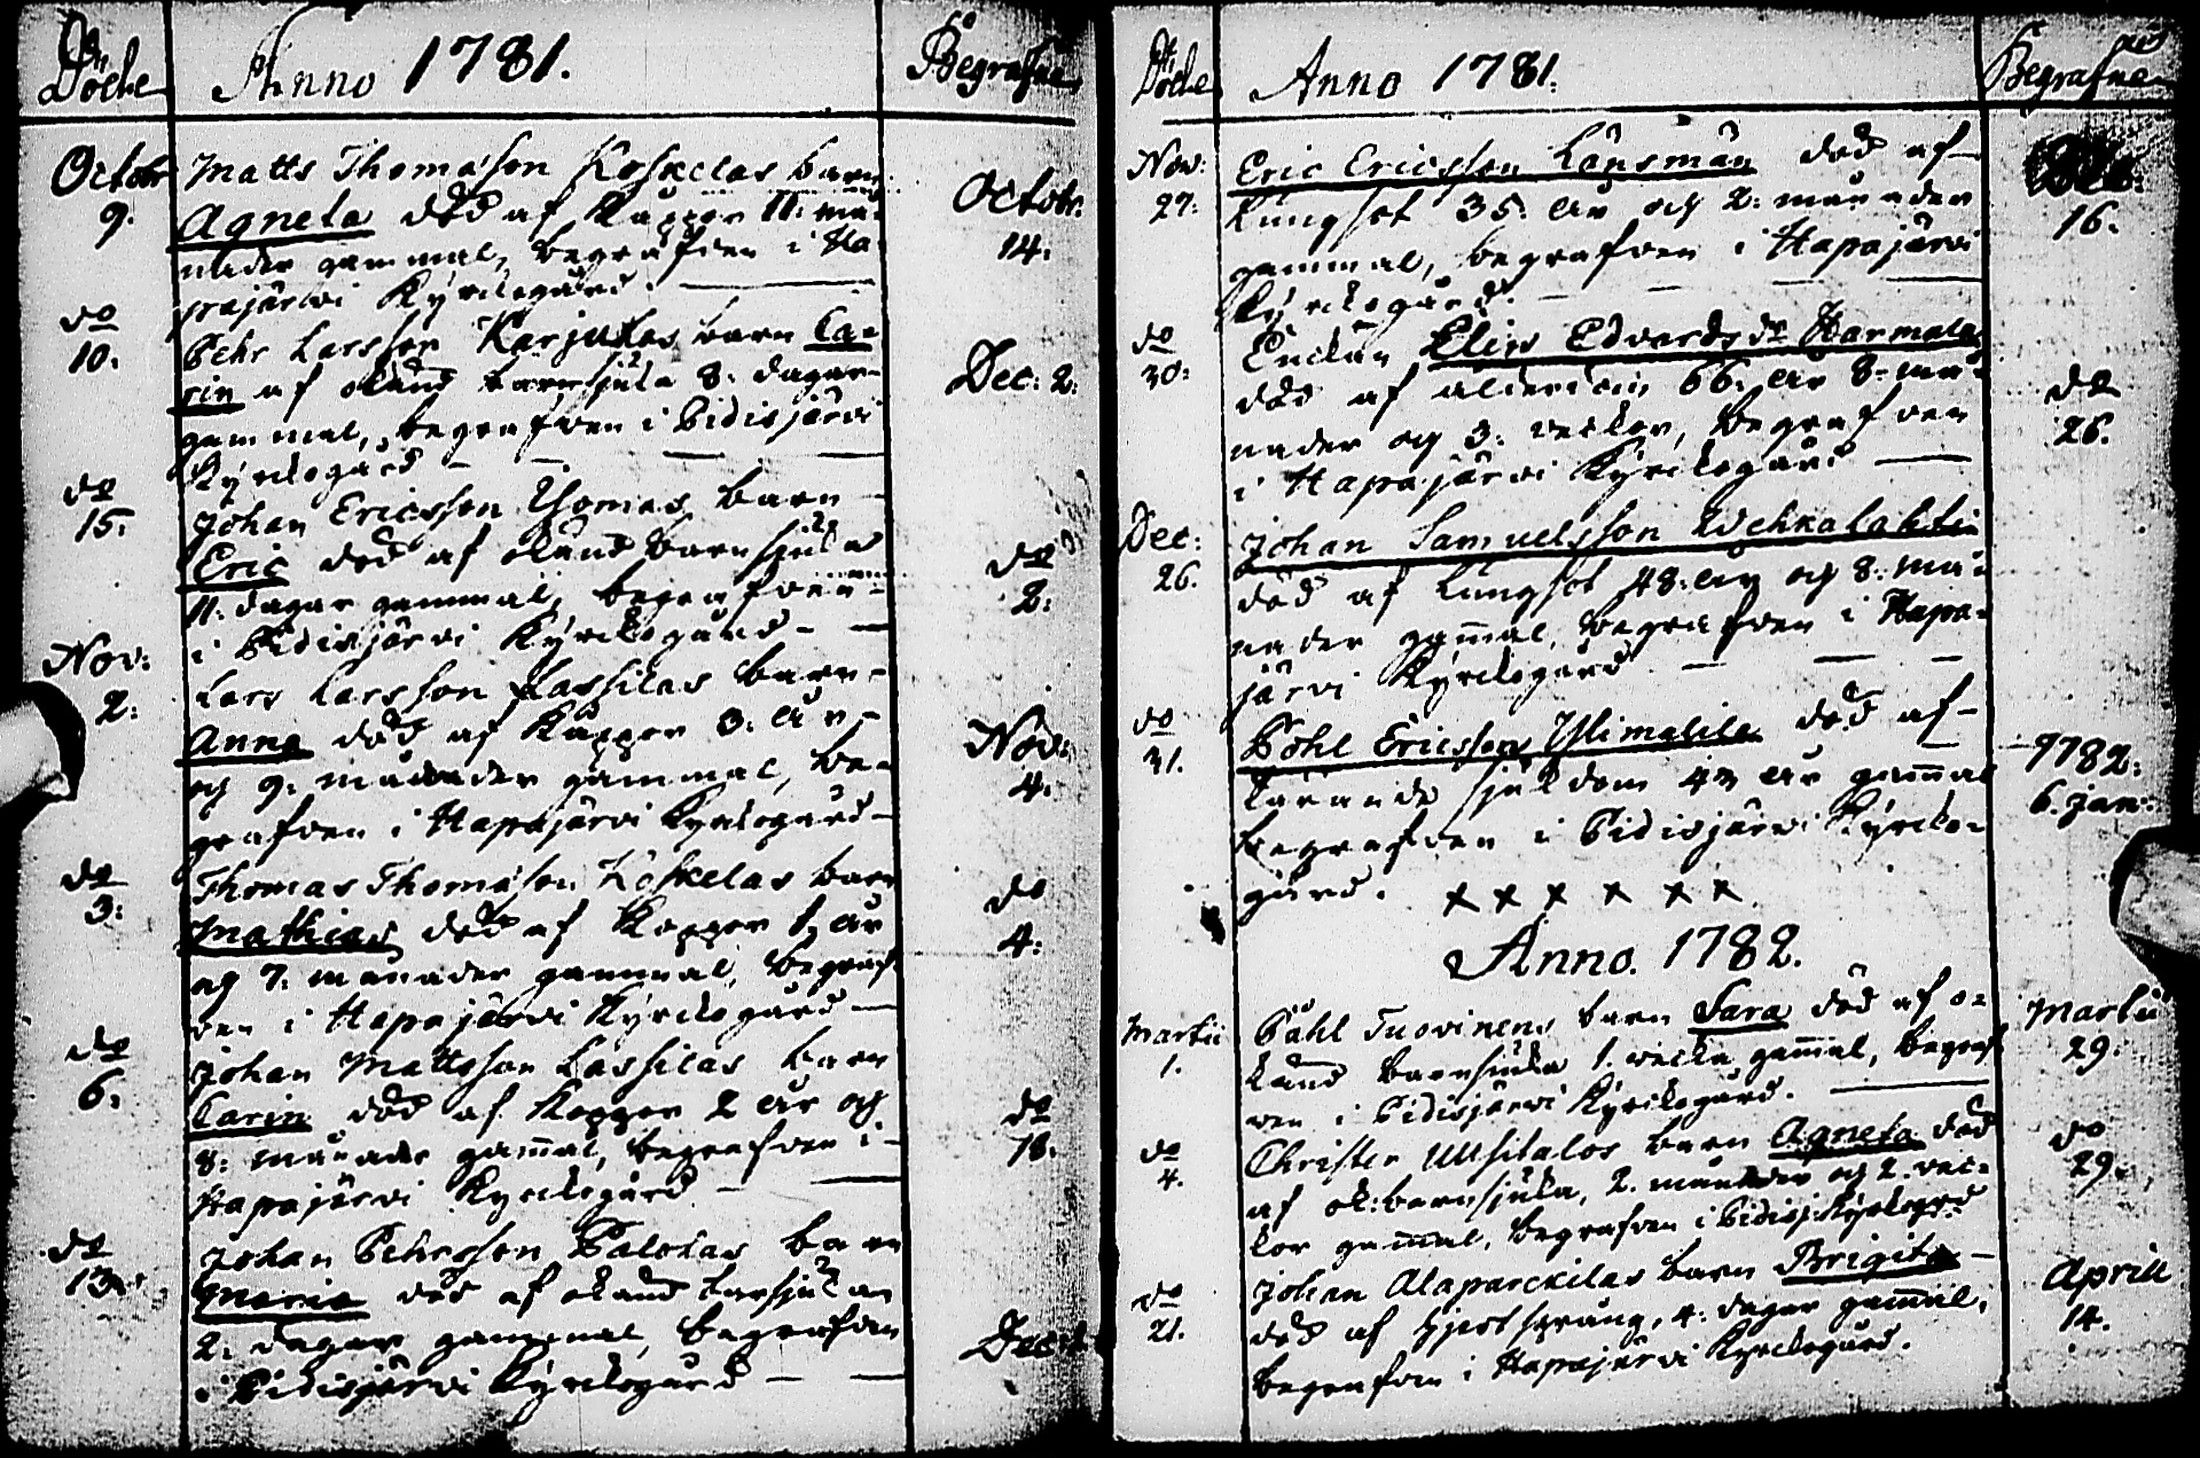 Döde Anno 1781. Begrafne
Octobr Matts Thomasson Koskelas barn
9. Agneta död af Koppor 11. må- Octobr.
nader gammal, begrafven i Ha- 14.
pajärwi Kyrckogård.
do Pehr Larsson Karjulas barn Ca-
10. rin af okänd barnsjuka 8. dagar Dec: 2.
gammal, begrafven i Pidisjärvi
Kyrckogård
do Johan Ericsson barn
15. Eric död af okänd barnsjuka do
11. dagar gammal, begrafven 2.
i Pidisjärvi Kyrckogård
Nov: Lars Larsson Lassilas barn
2. Anna död af Koppor 3. år Nov:
och 9. månader gammal, be- 4.
grafven i Hapajärvi Kyrckogård
do Thomas Thomasson Koskelas barn do
3. Mathias död af Koppor 1, år 4.
och 7. månader gammal, begraf
ven i Hapajärvi Kyrckogård
do Johan Mattsson Lassilas barn
6. Carin död af Koppor 2 år och do
8. månader gammal, begrafven i 18.
Hapajärvi Kyrckogård
do Johan Pehrsson Palolas barn
13. Maria död af okänd barnsjuka
2. dagar gammal, begrafven Dec:
i Pidisjärvi Kyrckogård
Döde Anno 1781. Begrafne
Nov: Eric Ericsson Länsman död af Dec:
27. Lungsot 35. år och 2. månader 16.
gammal, begrafven i Hapajärvi
Kyrckogård.
do Enckan Elin Edvardsdr Harmala
30. död af ålderdom, 66. år 8. må- do
nader och 3. veckor, begrafven 26.
i Hapajärvi Kyrckogård
Dec: Johan Samuelsson Wehkalahti
26. död af Lungsot 48. år och 8. må-
nader gam̄al, begrafven i Hapa-
järvi Kyrckogård
do Pohl Ericsson Ylimalila död af
31. tärande sjukdom 43 år gam̄al 1782.
begrafven i Pidisjärvi Kyrcko- 6. Jan:
gård. x x x x x x
Anno. 1782.
Martii Påhl Tuovinens barn Sara död af o- Martii
1. känd barnsjuka 1. vecka gam̄al, begraf 29.
ven i Pidisjärvi Kyrckogård.
do Christer Uusitalos barn Agneta död do
4. af ok: barnsjuka, 2. månader och 2. vec- 29.
kor gam̄al, begrafven i Pidisj. Kyrckogrd
do Johan Alaparckilas barn Brigita Aprill
21. död af hjertsprång, 4. dagar gam̄al, 14.
begrafven i Hapajärvi Kyrckogård.